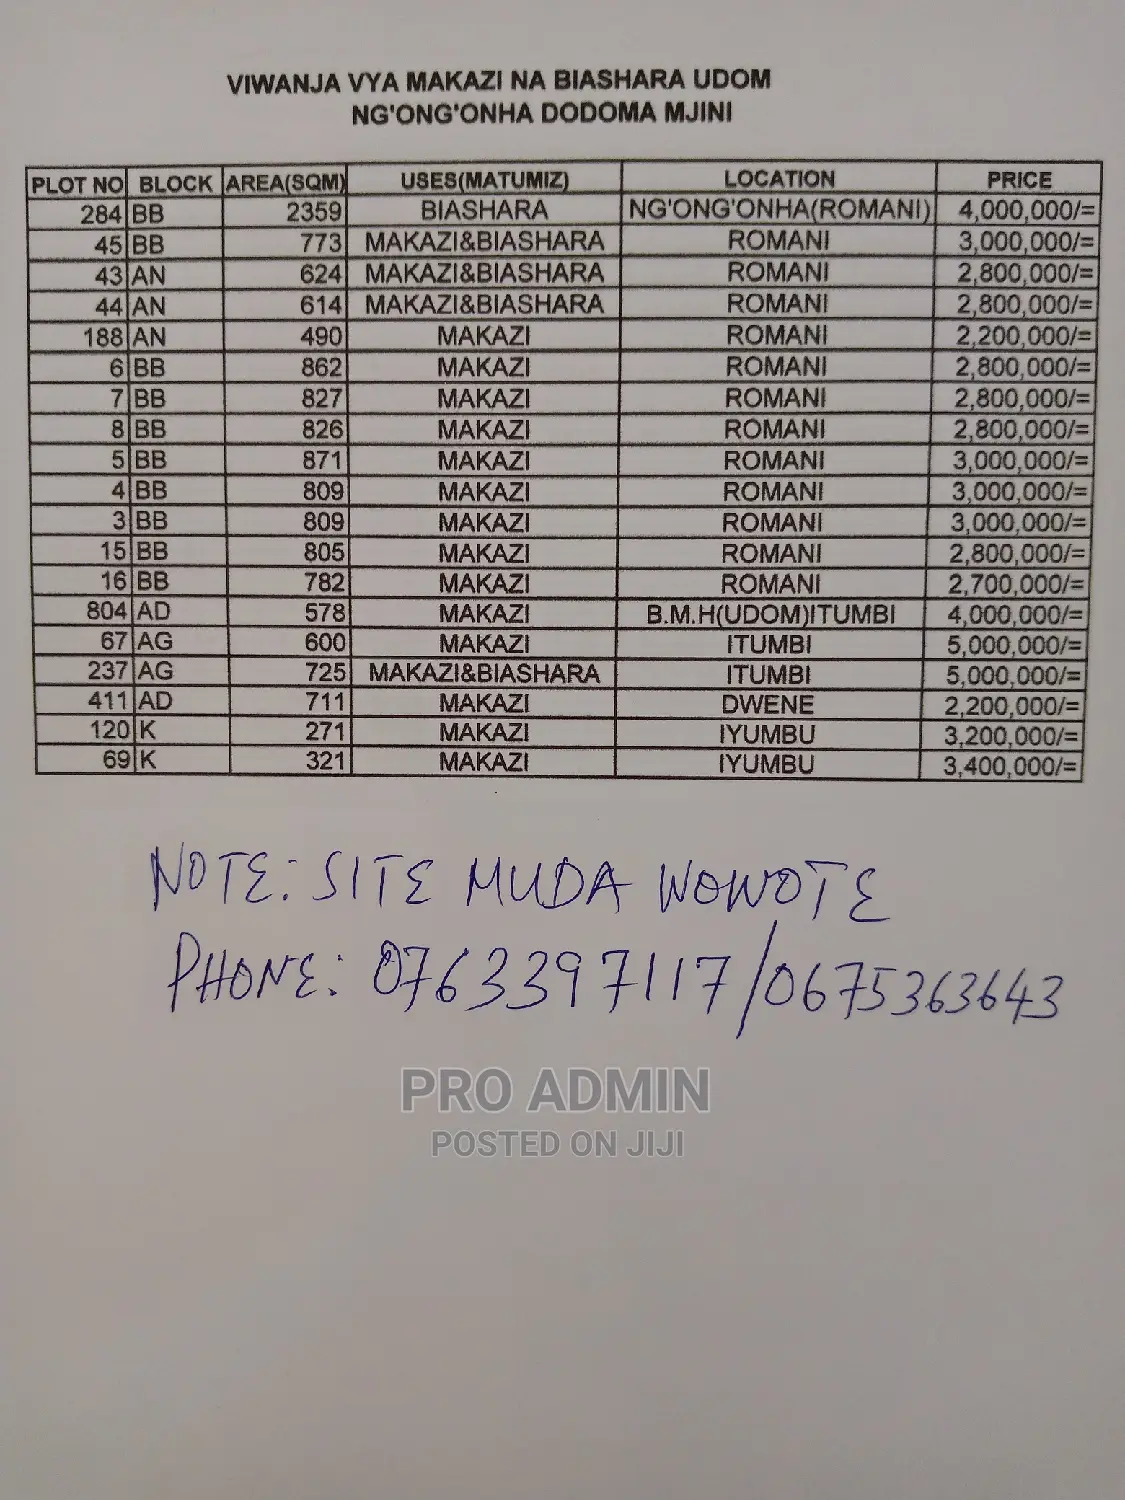 VIWANJA VYA MAKAZI NA BIASHARA UDOM
NG'ONG'ONHA DODOMA MJINI
PLOT NO BLOCK AREA(SQM) USES(MATUMIZ) LOCATION PRICE
284 BB 2359 BIASHARA NG'ONG'ONHA(ROMANI) 4,000,000/=
45 BB 773 MAKAZI&BIASHARA ROMANI 3,000,000/=
43 AN 624 MAKAZI&BIASHARA ROMANI 2,800,000/=
44 AN 614 MAKAZI&BIASHARA ROMANI 2,800,000/=
188 AN 490 MAKAZI ROMANI 2,200,000/=
6 BB 862 MAKAZI ROMANI 2,800,000/=
7 BB 827 MAKAZI ROMANI 2,800,000/=
8 BB 826 MAKAZI ROMANI 2,800,000/=
5 BB 871 MAKAZI ROMANI 3,000,000/=
4 BB 809 MAKAZI ROMANI 3,000,000/=
3 BB 809 MAKAZI ROMANI 3,000,000/=
15 BB 805 MAKAZI ROMANI 2,800,000/=
16 BB 782 MAKAZI ROMANI 2,700,000/=
804 AD 578 MAKAZI B.M.H(UDOM)ITUMBI 4,000,000/=
67 AG 600 MAKAZI ITUMBI 5,000,000/=
237 AG 725 MAKAZI&BIASHARA ITUMBI 5,000,000/=
411 AD 711 MAKAZI DWENE 2,200,000/=
120 K 271 MAKAZI IYUMBU 3,200,000/=
69 K 321 MAKAZI IYUMBU 3,400,000/=
NOTE: SITE MUDA WOWOTE
PHONE: 0763397117/0675363643
PRO ADMIN
POSTED ON JIJI